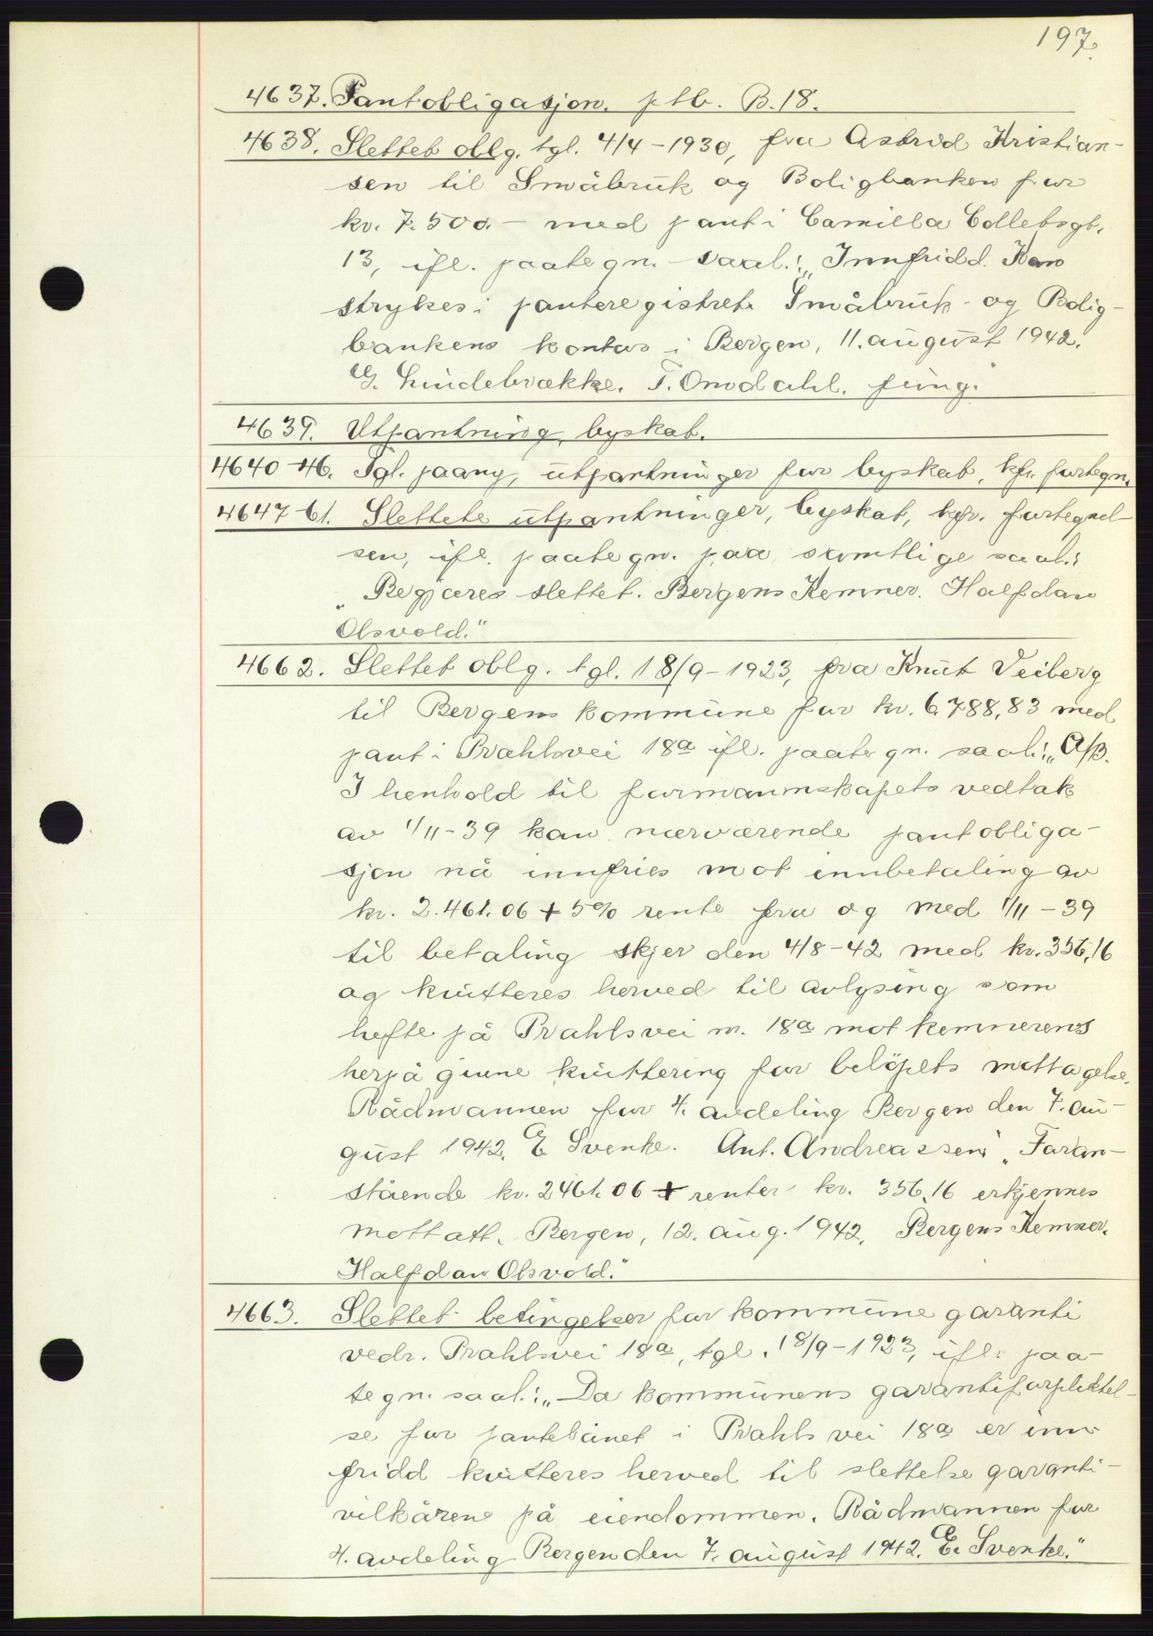 197.
4637. Pantobligasjon. ptb. B.18.
4638. Slettet oblg. tgl. 4/4-1930, fra Astrid Kristian-
sen til Småbruk og Boligbanken for
kr. 7.500.- med pant i Camilla Colletsgt.
13, ifl. paategn. saal.: „Innfridd. Kan
strykes i panteregistret. Småbruk- og Bolig-
bankens kontor i Bergen, 11. august 1942.
G. Lindebrække. T. Omdahl. fung."
4639. Utpantning, byskat.
4640-46. Tgl. paany, utpantninger for byskat, kfr. fortegn.
4647-61. Slettete utpantninger, byskat, kfr. fortegnel-
sen, ifl. paategn. paa samtlige saal.:
„Begjæres slettet. Bergens Kemner. Halfdan
Olsvold."
4662. Slettet oblg. tgl. 18/9-1923, fra Knut Veiberg
til Bergens kommune for kr. 6.788,83 med
pant i Prahlsvei 18a ifl. paategn. saal.: „A/B.
I henhold til formannskapets vedtak
av 1/11-39 kan nærværende pantobliga-
sjon nå innfries mot innbetaling av
kr. 2.461.06 + 5% rente fra og med 1/11-39
til betaling skjer den 4/8-42 med kr. 356,16
og kvitteres herved til avlysing som
hefte på Prahlsvei nr. 18a mot kemnerens
herpå givne kvittering for beløpets mottagelse.
Rådmannen for 4. avdeling Bergen den 7. au-
gust 1942. E. Svenke. Ant. Andreassen" „Foran-
stående kr. 2461.06 + renter kr. 356,16 erkjennes
mottatt. Bergen, 12. aug. 1942. Bergens Kemner.
Halfdan Olsvold."
4663. Slettet betingelser for kommunegaranti
vedr. Prahlsvei 18a, tgl. 18/9-1923, ifl. paa-
tegn. saal.: „Da kommunens garantiforpliktel-
se for pantelånet i Prahls vei 18a er inn-
fridd kvitteres herved til slettelse garanti-
vilkårene på eiendommen. Rådmannen for
4. avdeling Bergen den 7. august 1942. E. Svenke."